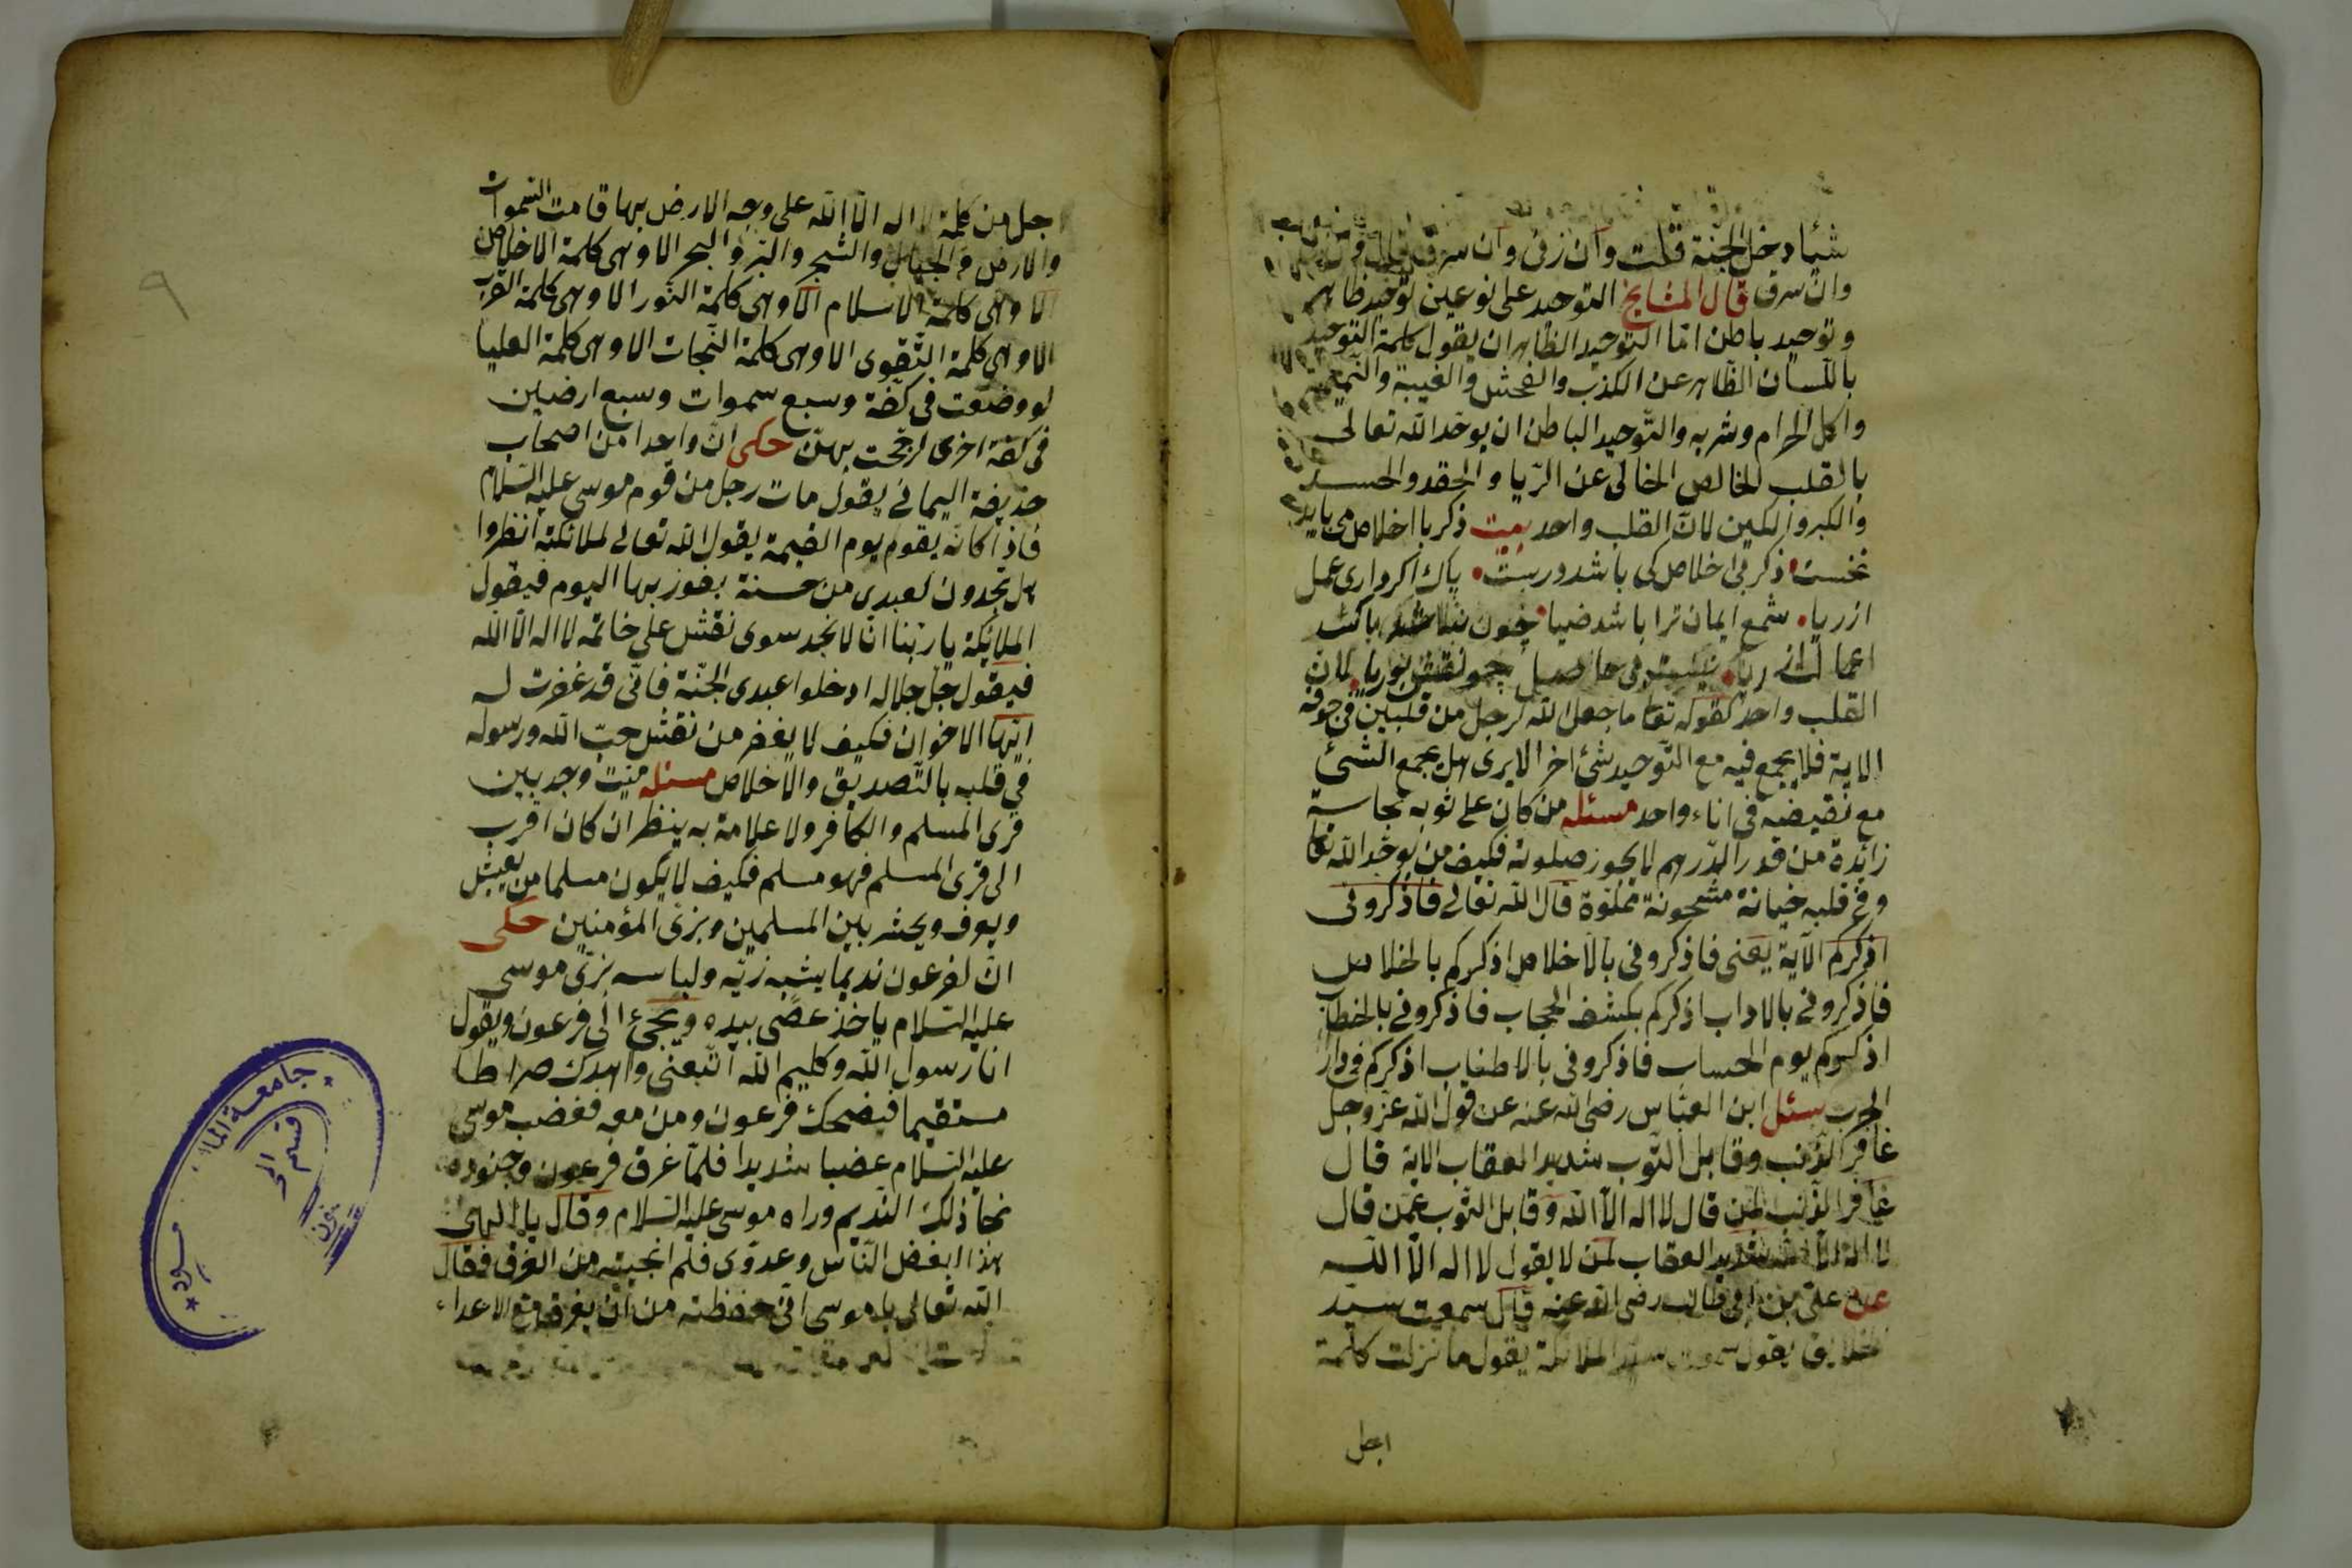 شيئا دخل الجنة قلت وان زنى وان سرق قال وان زنى
وان سرق قال المشايخ التوحيد على نوعين توحيد ظاهر
وتوحيد باطن امّا التوحيد الظاهر ان يقول كلمة التوحيد
باللّسان الظّاهر عن الكذب والفحش والغيبة والنّميمة
واكل الحرام وشربه والتّوحيد الباطن ان يوحّد الله تعالى
بالقلب الخالص الخالى عن الرّيا والحقد والحسد
والكبر والكين لانّ القلب واحد بيت ذكر با اخلاص مى بايد
نخست ذكر بى اخلاص كى باشد درست پاك اكر دارى عمل
از ريا شمع ايمان ترا باشد ضيا چون نباشد پاكت
اعمالت از ريا نيست مى حاصل چو نقش بوريا لان
القلب واحد لقوله تعا ما جعل الله لرجل من قلبين فى جوفه
الاية فلا يجمع فيه مع التّوحيد شئ اخر الا يرى هل يجمع الشئ
مع نقيضه فى اناء واحد مسئله من كان على ثوبه نجاسة
زائدة من قدر الدّرهم لا يجوز صلوته فكيف من يوحّد الله تعا
وفى قلبه خيانة مشحونة مملوّة قال الله تعالى فاذكرونى
اذكركم الآية يعنى فاذكرونى بالاخلاص اذكركم بالخلاص
فاذكرونى بالاداب اذكركم بكشف الحجاب فاذكرونى بالخطاب
اذكركم يوم الحساب فاذكرونى بالاطناب اذكركم فى دار
سئل ابن العبّاس رضى الله عنه عن قول الله عزّ وجل
غافر الذّنب وقابل التّوب شديد العقاب الاية قال
غافر الذّنب لمن قال لا اله الّا الله وقابل التّوب عمّن قال
لا اله الّا الله شديد العقاب لمن لا يقول لا اله الّا الله
عن علىّ بن ابى طالب رضى الله عنه قال سمعت سيّد
الخلايق يقول سمعت سيّد الملائكة يقول ما نزلت كلمة
اجل
جل من كلمة لا اله الّا الله على وجه الارض بها قامت السّموات
والارض والجبال والشّجر والبّر والبحر الا وهى كلمة الاخلاص
الا وهى كلمة الاسلام الا وهى كلمة النّور الا وهى كلمة القرب
الا وهى كلمة التّقوى الا وهى كلمة النّجات الا وهى كلمة العليا
لو وضعت فى كفّة وسبع سموات وسبع ارضين
فى كفة اخرى لرجّحت بهنّ حكى انّ واحدا من اصحاب
حذيفة اليمانى يقول مات رجل من قوم موسى عليه السّلام
فاذا كانه يقوم يوم القيمة يقول الله تعالى لملائكته انظروا
هل تجدون لعبدى من حسنة يفوز بها اليوم فيقول
الملائكة يا ربّنا انّا لا نجد سوى نقش على خاتمه لا اله الّا الله
فيقول جلّ جلاله ادخلوا عبدى الجنّة فانّى قد غفرت له
ايّها الاخوان فكيف لا يغفر من نقش حبّ الله ورسوله
فى قلبه بالتّصديق والاخلاص مسئله ميّت وجد بين
قرى المسلم والكافر ولا علامة به ينظر ان كان اقرب
الى قرى المسلم فهو مسلم فكيف لا يكون مسلما من يعيش
ويعرف ويحشر بين المسلمين وبزىّ المؤمنين حكى
انّ لفرعون نديما يشبه زيّه ولباسه بزىّ موسى
عليه السّلام ياخذ عصى بيده ويجئ الى فرعون ويقول
انا رسول الله وكليم الله اتّبعنى واهدك صراطا
مستقيما فيضحك فرعون ومن معه فغضب موسى
عليه السّلام غضبا شديدا فلمّا غرق فرعون وجنوده
نجا ذلك النّديم وراه موسى عليه السّلام وقال يا الهى
هذا ابغض النّاس وعدوّى فلم انجيته من الغرق فقال
الله تعالى يا موسى انى حفظته من ان يغرق مع الاعداء
٩
جامعة الملك سعود
قسم